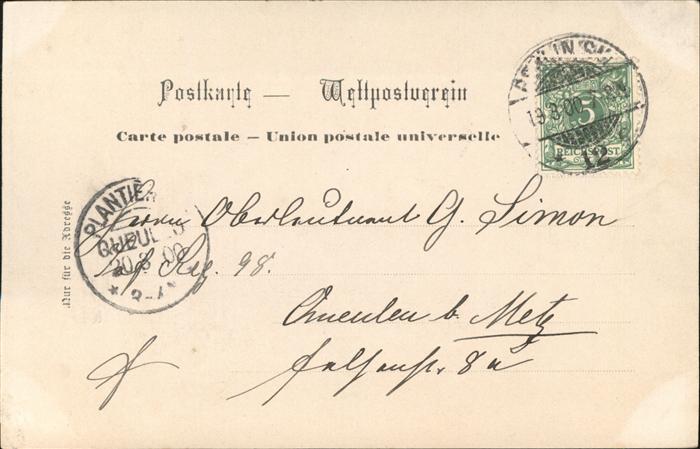 Postkarte — Weltpostverein
Carte postale – Union postale universelle
BERLIN S.W.
19.3.00
* 12
5
REICHSPOST
Nur für die Adresse
PLANTIÈR
QUEUL
20.3.00
*
Herrn Oberleutnant G. Simon
Inf. Reg. 98.
Queulen b. Metz